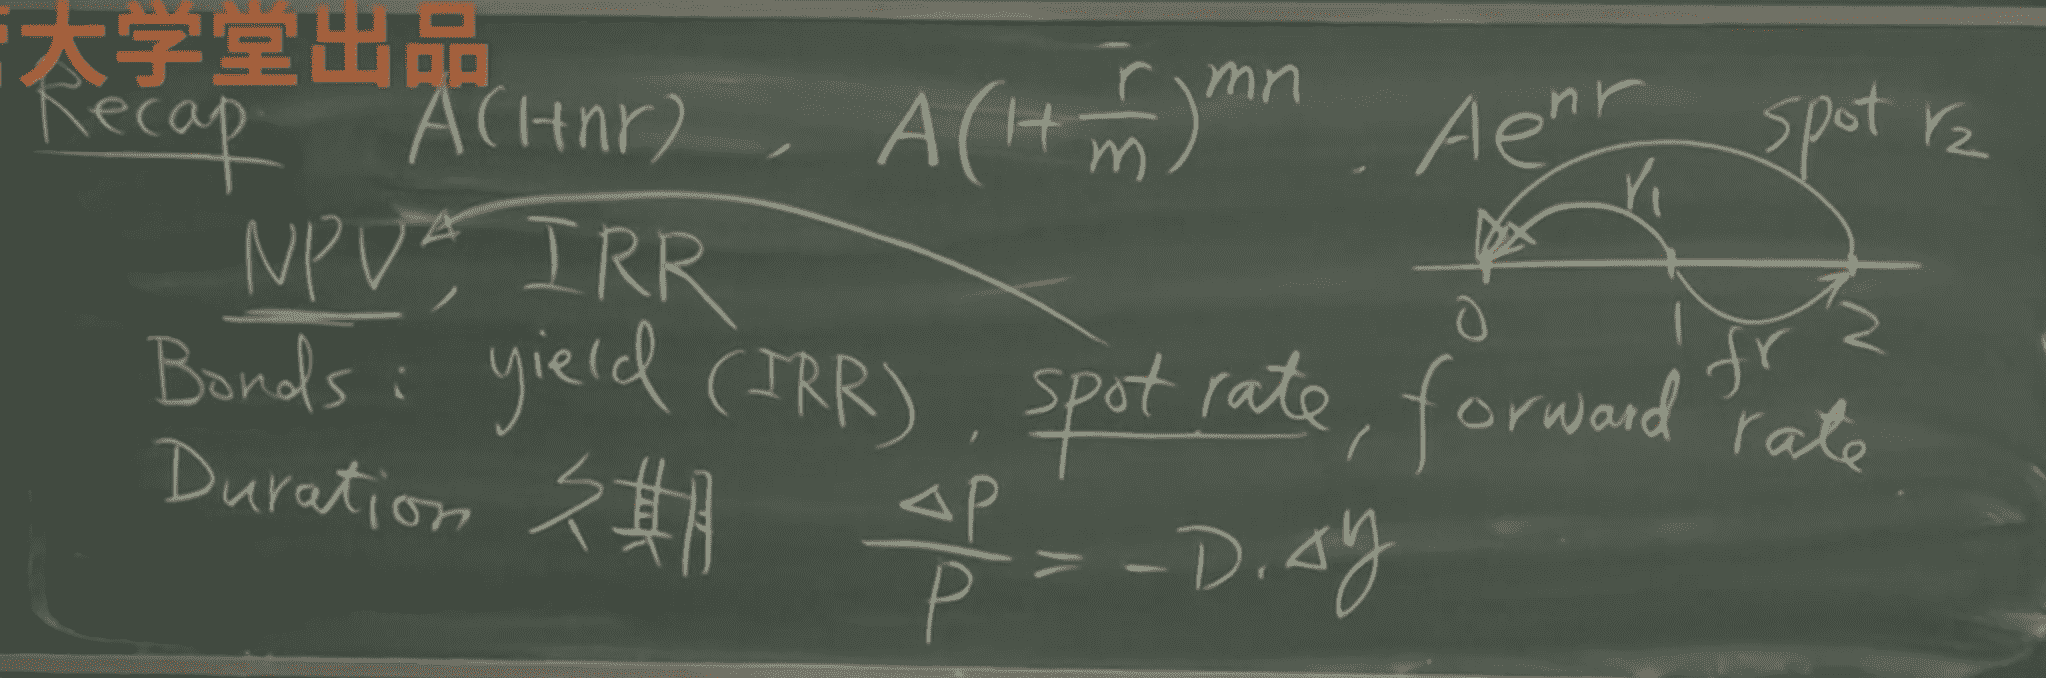 大学堂出品
Recap A(1+nr), A(1+r/m)^mn, Ae^nr spot r₂
r₁
NPV, IRR
0 1 2
fr
Bonds: yield (IRR), spot rate, forward rate
Duration 久期 ΔP/P = -D·Δy